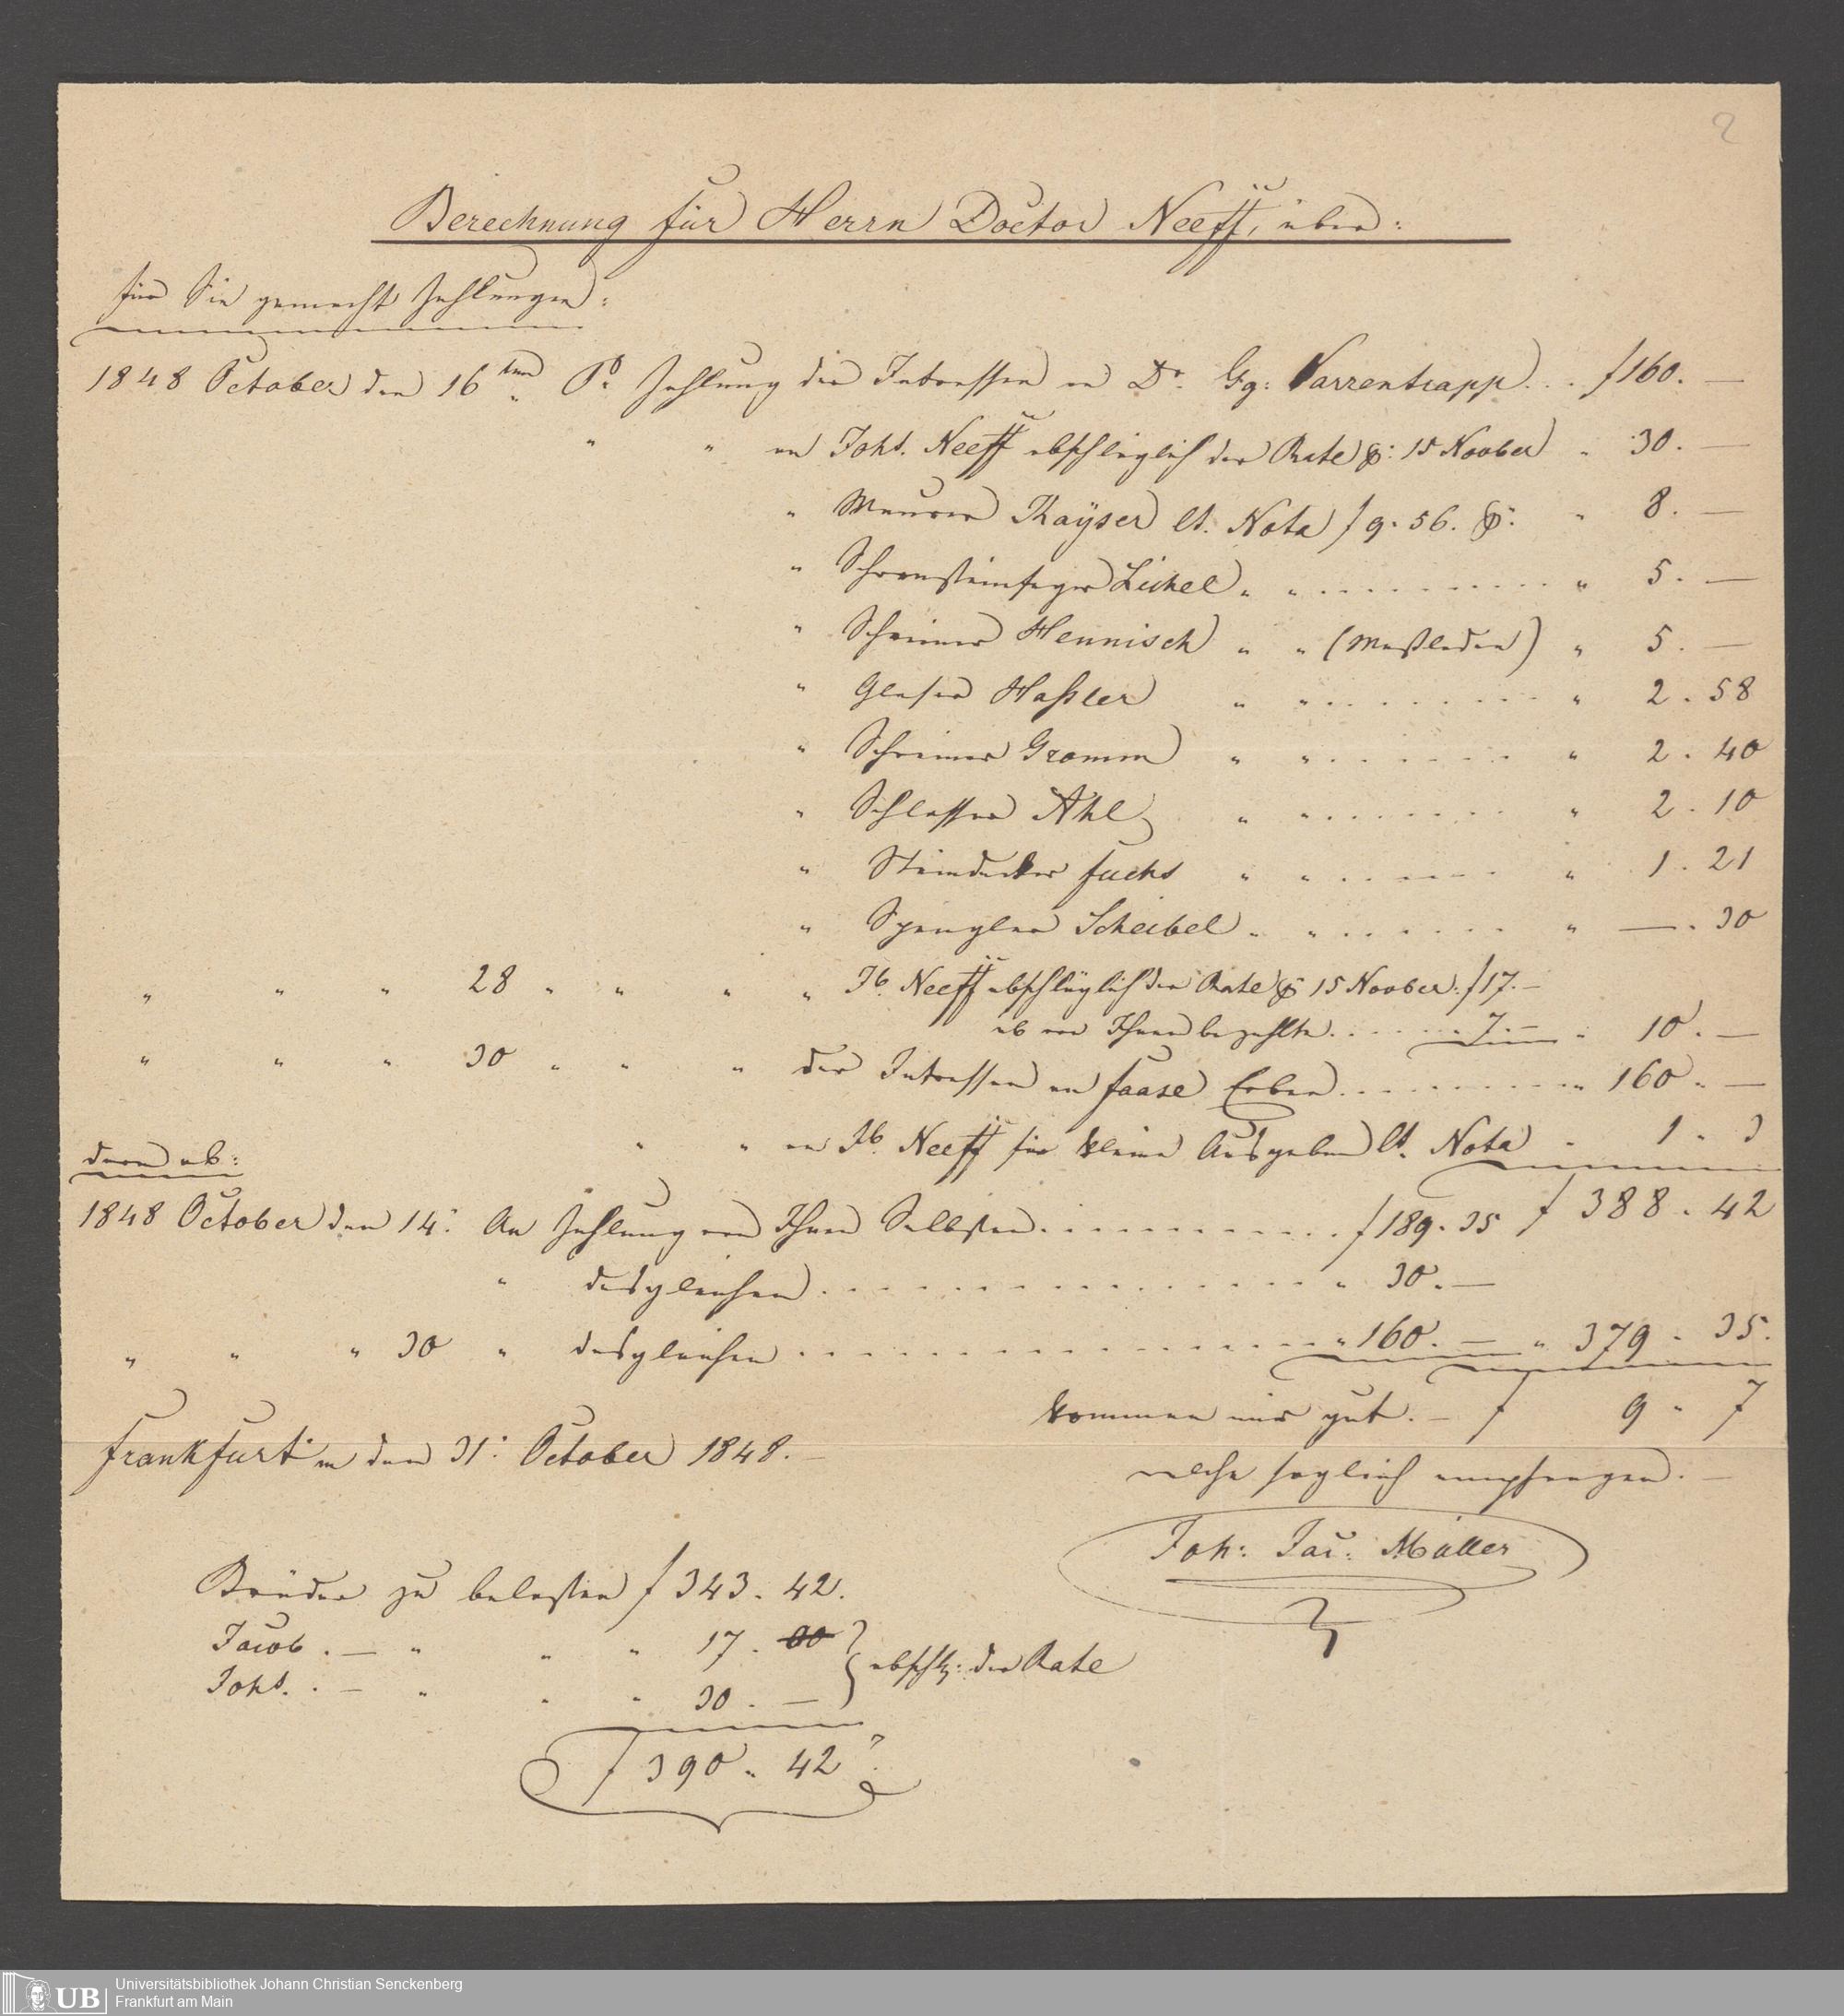 2
Berechnung für Herrn Doctor Neeff, über:
für Sie gemacht Zahlungen:
1848 October den 16ten Po. Zahlung der Intressen an Dr. Gg: Varrentrapp... f 160. —
" " an Johs. Neeff abschläglich der Rate p: 15 Novber " 30. —
" Maurer Kayser lt. Nota f 9. 56. p: " 8. —
" Schornsteinfeger Zickel " " " 5. —
" Schreiner Hennisch " " (Meßladen) " 5. —
" Glaser Haßler " " " 2. 58
" Schreiner Gramm " " " 2. 40
" Schlosser Ahl " " " 2. 10
" Steindecker Fuchs " " " 1. 21
" Spengler Scheibel " " " —. 30
" " " 28 " " " " Jb. Neeff abschläglich der Rate p 15 Novber. f 17. —
ab von Ihnen bezahlte 7. — " 10. —
" " " 30 " " " der Intressen an Haase Erben " 160. —
" " an Jb. Neeff für kleine Ausgaben lt. Nota " 1. 3
dann ab:
f 388. 42
1848 October den 14: An Zahlung von Ihnen Selbsten f 189. 35
" desgleichen " 30. —
" " " 30 " desgleichen " 160. — " 379. 35.
kommen mir gut. — f 9. 7
Frankfurt a/m den 31: October 1848. —
welche sogleich empfangen. —
Joh: Jac: Müller
Brüder zu belasten f 343. 42.
Jacob. — " " " 17. 00
Johs. — " " " 30. —
abschlg: der Rate
f 390. 42
UB
Universitätsbibliothek Johann Christian Senckenberg
Frankfurt am Main